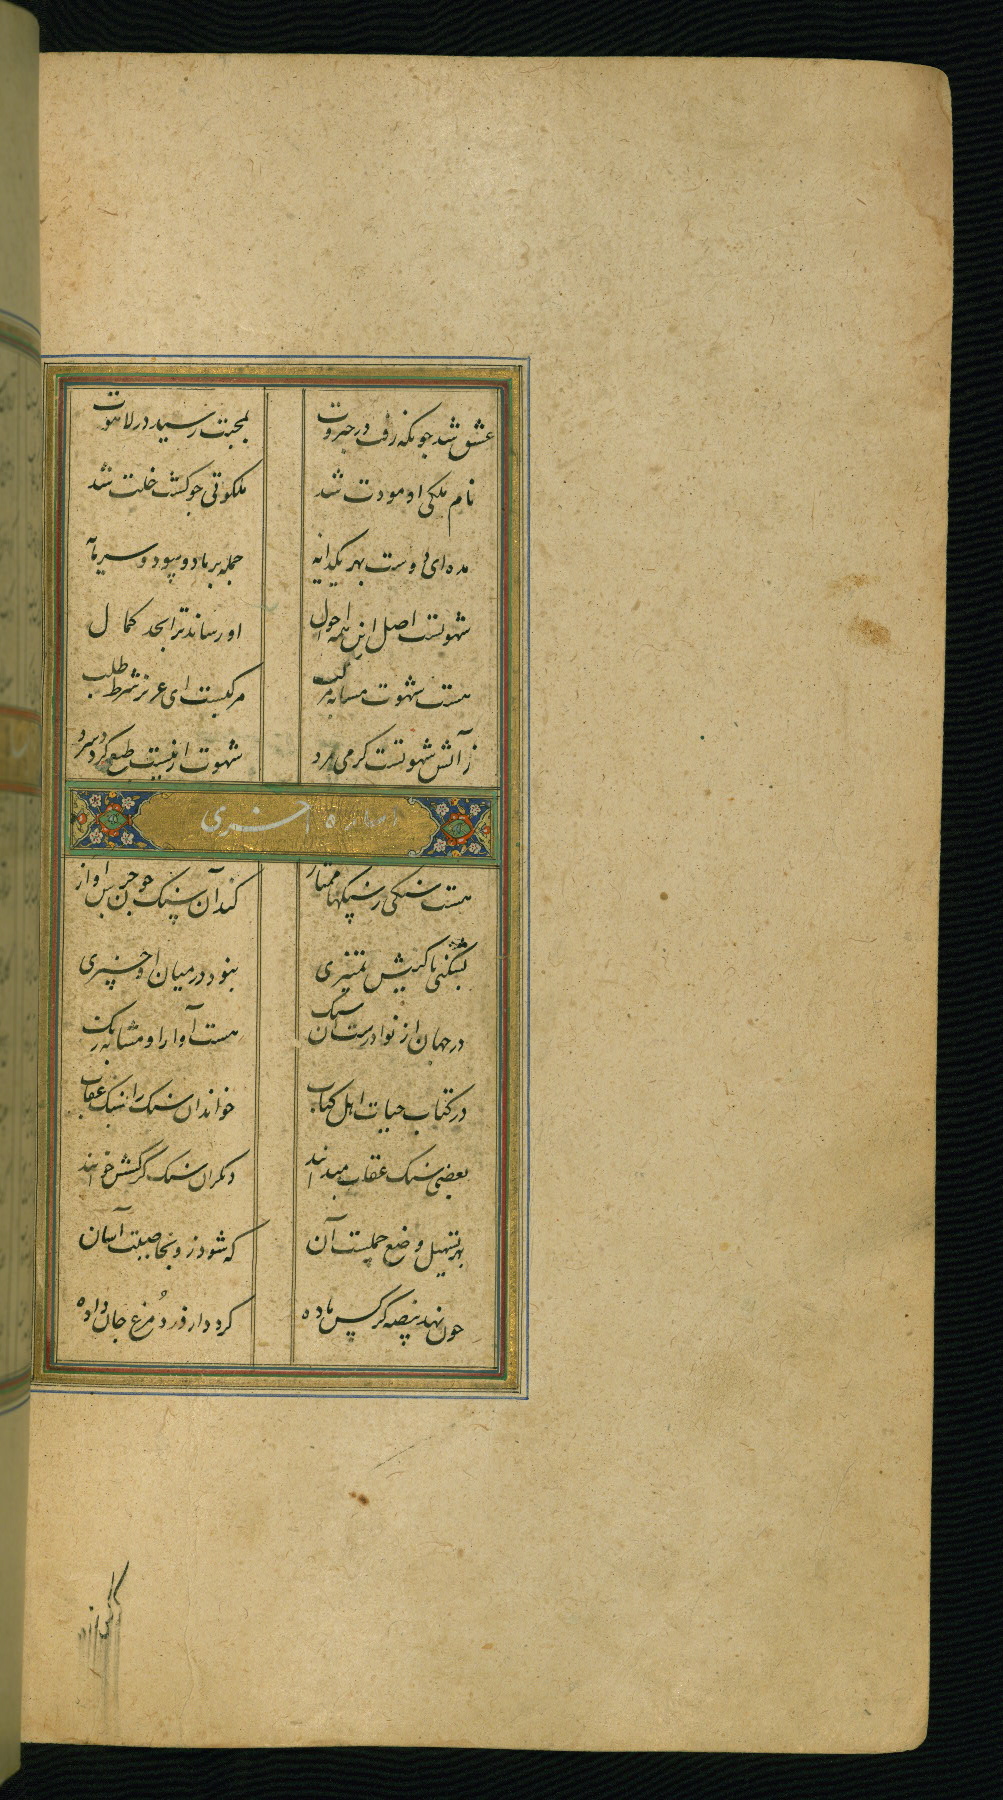 عشق شد چونکه رفت در جبروت
بمحبت رسید در لاهوت
نام ملکی او مودت شد
ملکوتی چو گشت خلت شد
مده ای دوست بهر یکدانه
جمله بر باد و سود و سرمایه
شهوتست اصل این همه احوال
او رساند ترا بحد کمال
هست شهوت مسابه مرکب
مرکبست ای عزیز شرط طلب
ز آتش شهوتست کرمی مرد
شهوت ار نیست طبع کردد سرد
اخری
هست سنکی ز سنکها ممتاز
کند آن سنک چون جرس آواز
بشکنی تا کنیش تمییزی
نبود در میان او چیزی
در جهان از نوادرست آن سنک
هست آوا را و مشابه زنک
در کتاب حیات اهل کتاب
خواند آن سنک را سنک عقاب
بعضی سنک عقاب میدانند
دیکران سنک کرکسش خوانند
بهر تسهیل وضع حملست آن
که شود زو بخاصیت آسان
چون نهد بیضه کرکس ماده
کردد از درد مرغ جان داده